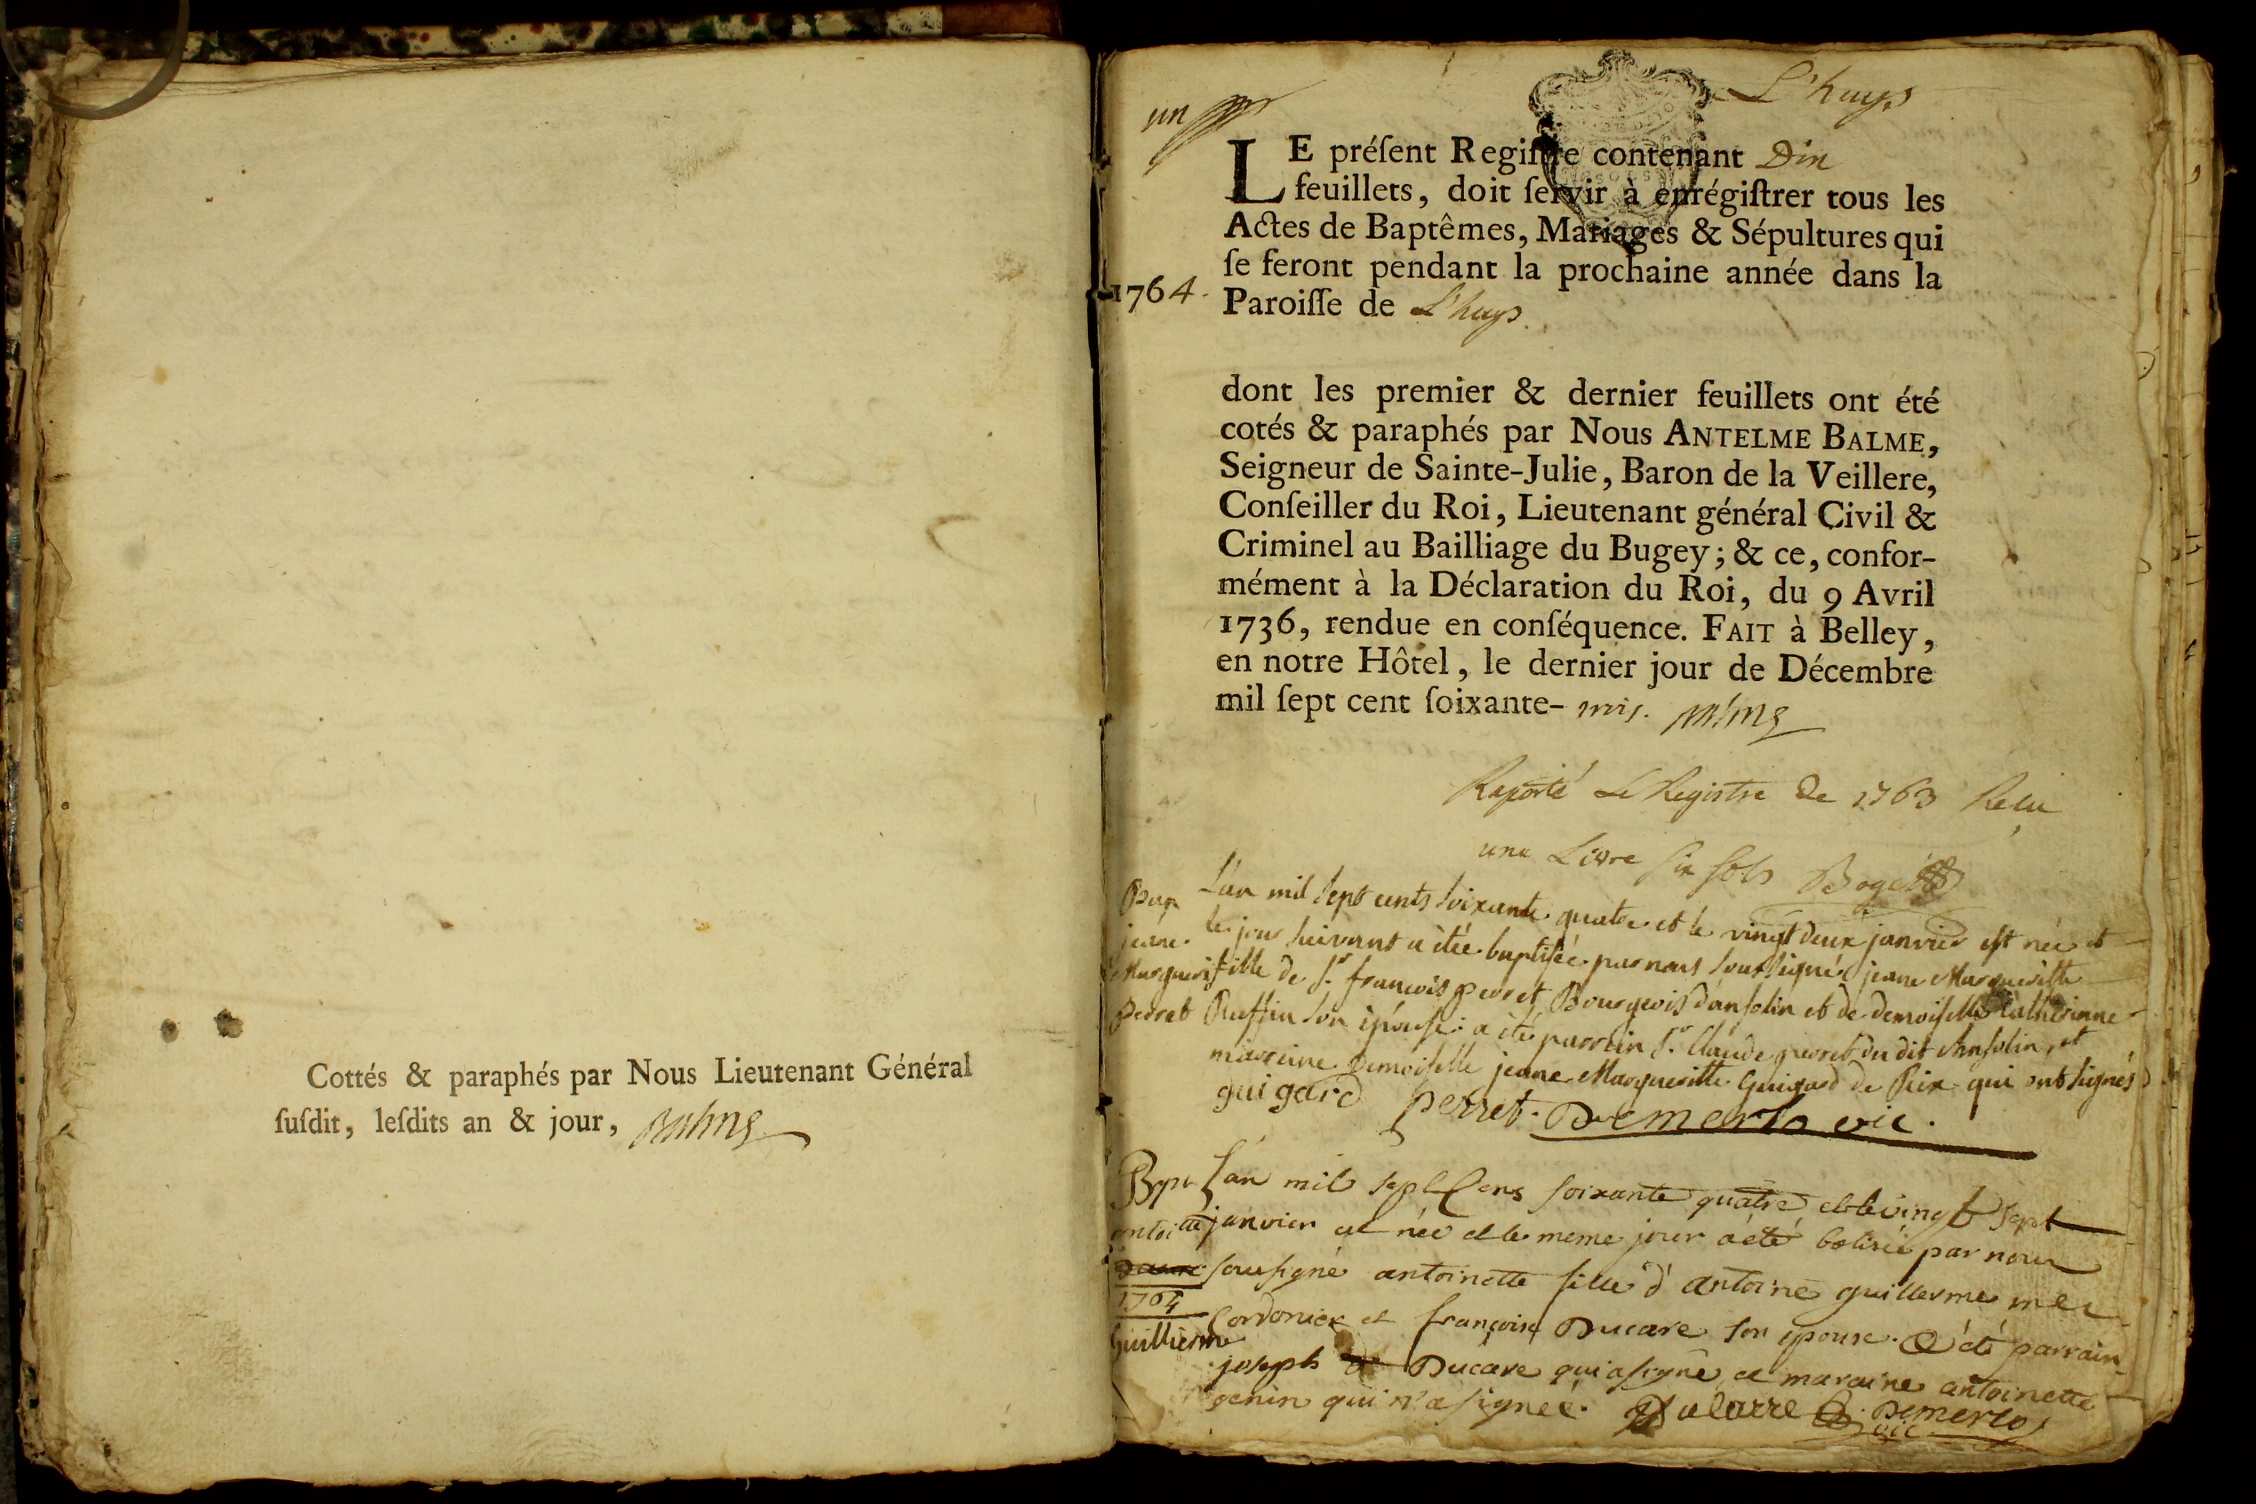 Cottés & paraphés par Nous Lieutenant Général
ſuſdit, leſdits an & jour, Balme
un
L'huys
LE préſent Regiſtre contenant Dix
feuillets, doit ſervir à enrégiſtrer tous les
Actes de Baptêmes, Mariages & Sépultures qui
ſe feront pendant la prochaine année dans la
1764. Paroiſſe de L'huys.
dont les premier & dernier feuillets ont été
cotés & paraphés par Nous ANTELME BALME,
Seigneur de Sainte-Julie, Baron de la Veillere,
Conſeiller du Roi, Lieutenant général Civil &
Criminel au Bailliage du Bugey; & ce, confor-
mément à la Déclaration du Roi, du 9 Avril
1736, rendue en conſéquence. FAIT à Belley,
en notre Hôtel, le dernier jour de Décembre
mil ſept cent ſoixante- trois. Balme
Raporté Le Registre de 1763 Reçu
une Livre six sols
Bap
jeane
Marguerit
Perret
L'an mil sept cents soixante quatre et le vingt deux janvier est née et
le jour suivant a étée baptisée par nous soussigné jeane Margueritte
fille de Sr. françois perret Bourgeois d'ansolin et de demoiselle Catherinne
Ruffin son épouse: a été parrein Sr. Claude perret du dit Ansolin, et
marreine Demoiselle jeane Margueritte Guigard de Rix qui ont signés
guigard perret. Demerlo vic.
Bapt
antoinette
1764
Guillierme
L'an mil sept Cens soixante quatre et le vingt sept
janvier est née et le meme jour a été batisée par nous
sousigné antoinette fille d'antoine guillerme me
Cordonier et françoise Ducare son epouse. a été parrain
joseph Ducare qui a signé et maraine antoinette
genin qui n'a signée. Demerlo
vic